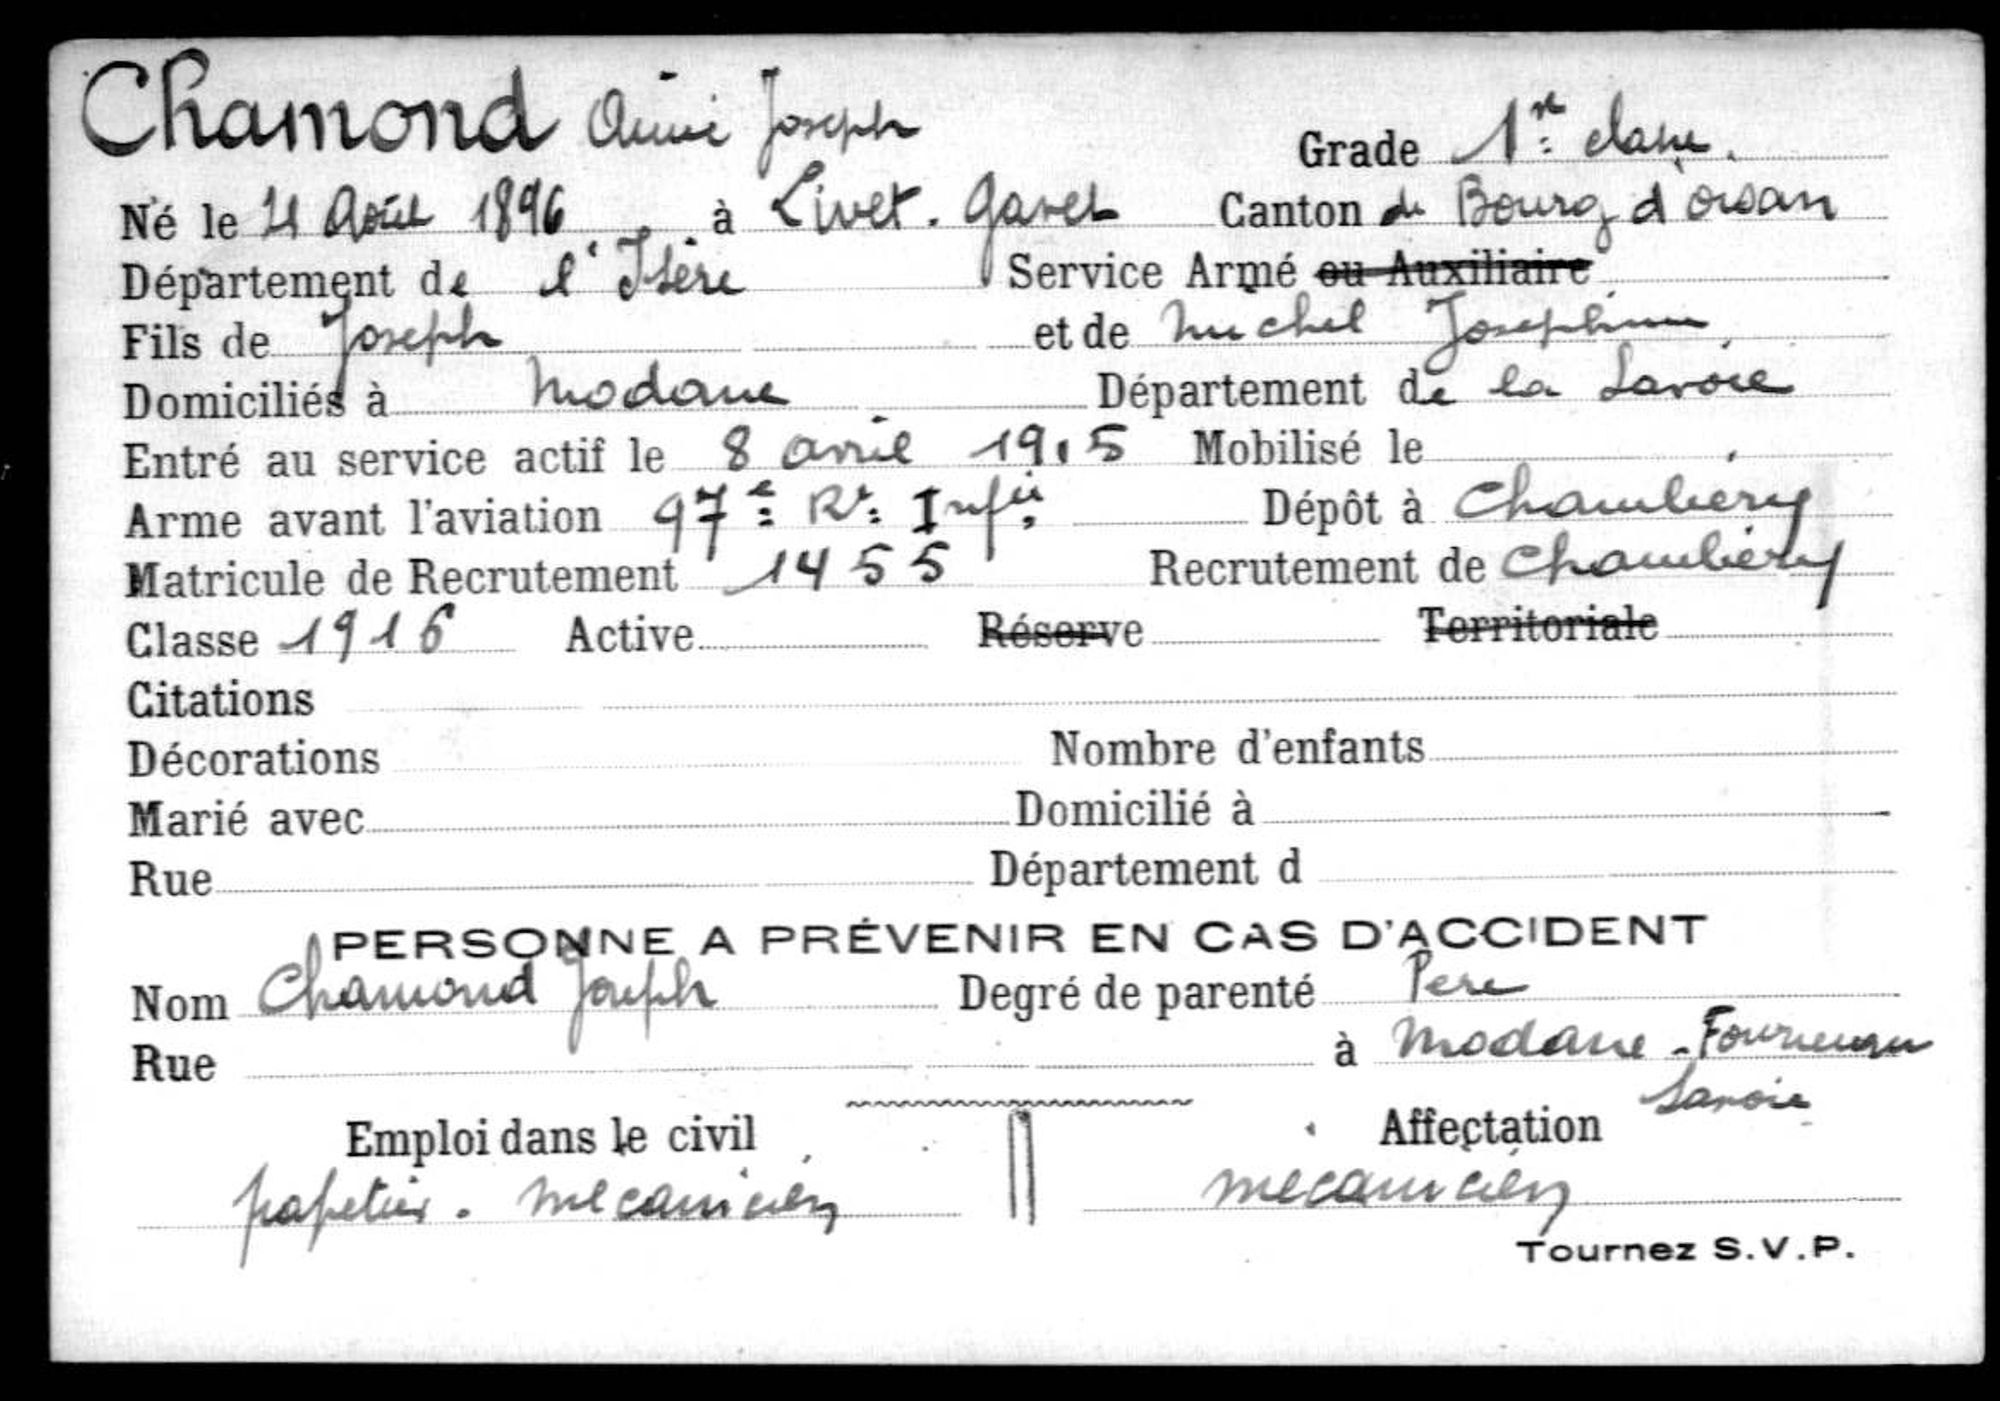 Chamond Aimé Joseph Grade 1re classe.
Né le 21 Août 1896 à Livet-Gavet Canton de Bourg d'oisan
Département de l'Isère Service Armé ou Auxiliaire
Fils de Joseph et de Michel Josephine
Domiciliés à Modane Département de la Savoie
Entré au service actif le 8 avril 1915 Mobilisé le
Arme avant l'aviation 97e Rt Infie Dépôt à Chambery
Matricule de Recrutement 1455 Recrutement de Chambéry
Classe 1916 Active Réserve Territoriale
Citations
Décorations Nombre d'enfants
Marié avec Domicilié à
Rue Département d
PERSONNE A PRÉVENIR EN CAS D'ACCIDENT
Nom Chamond Joseph Degré de parenté Pere
Rue à Modane - Fourneau
Savoie
Emploi dans le civil Affectation
papetier. mecanicien mecanicien
Tournez S.V.P.